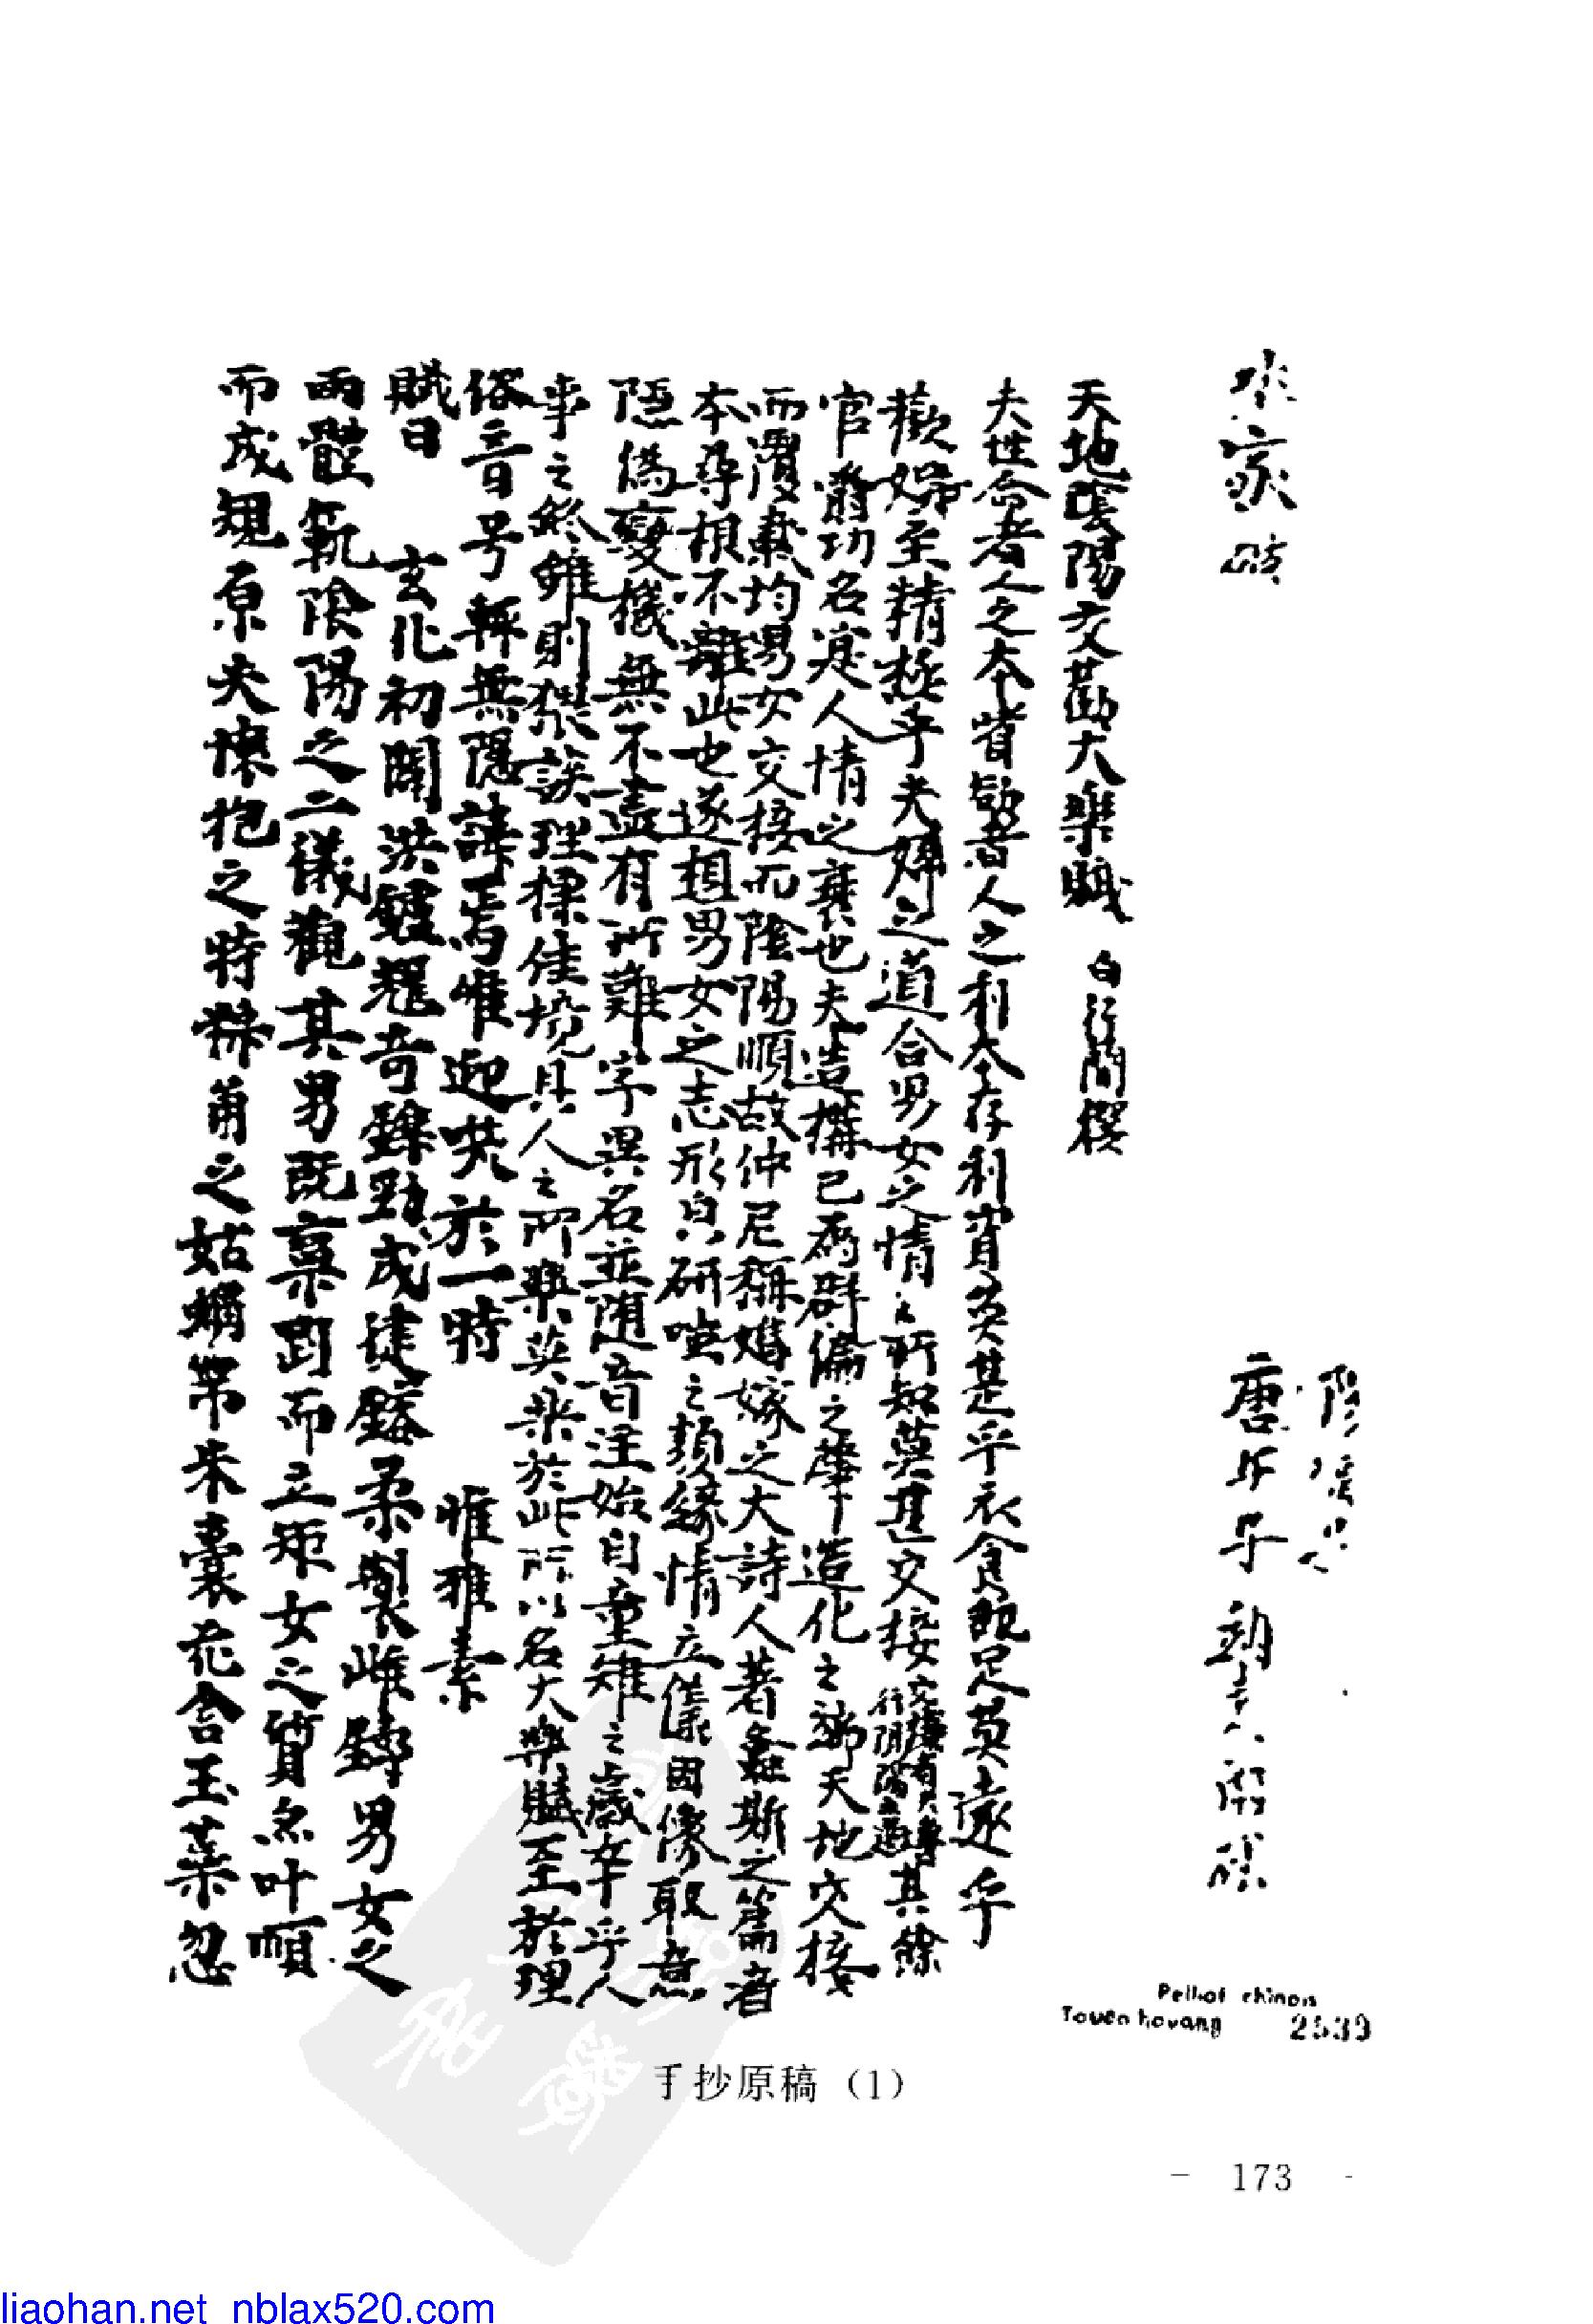 天地陰陽交歡大樂賦 白行簡撰
夫性命者人之本嗜慾者人之利本存利資莫甚乎衣食既足莫遠乎
歡娛至精極乎夫婦之道合男女之情情所知莫甚交接 交接者夫 行陰陽之道 其餘
官爵功名寔人情之衰也夫造構已為群倫之肇造化之端天地交接
而覆載均男女交接而陰陽順故仲尼稱婚嫁之大詩人著螽斯之篇考
本尋根不離此也遂想男女之志形白研 之類緣情立儀因像取意
隱偽變機無不盡有所難字異名並隨音注始自童稚之歲卒乎人
事之終雖則猥談理標佳境具人之所樂莫樂於此所以名大樂賦至於理
俗音号輒無隱諱焉唯迎笑於一時 唯雅素
賦曰 玄化初闢洪鑪耀奇鑠勁成健鎔柔製雌鑄男女之
兩體範陰陽之二儀觀其男既稟剛而立矩女之質亦叶順
而成規原夫懷抱之時 角之 帶朱囊花含玉蘂忽
Pelliot chinois
Touen houang 2539
手抄原稿（1）
- 173 -
liaohan.net nblax520.com